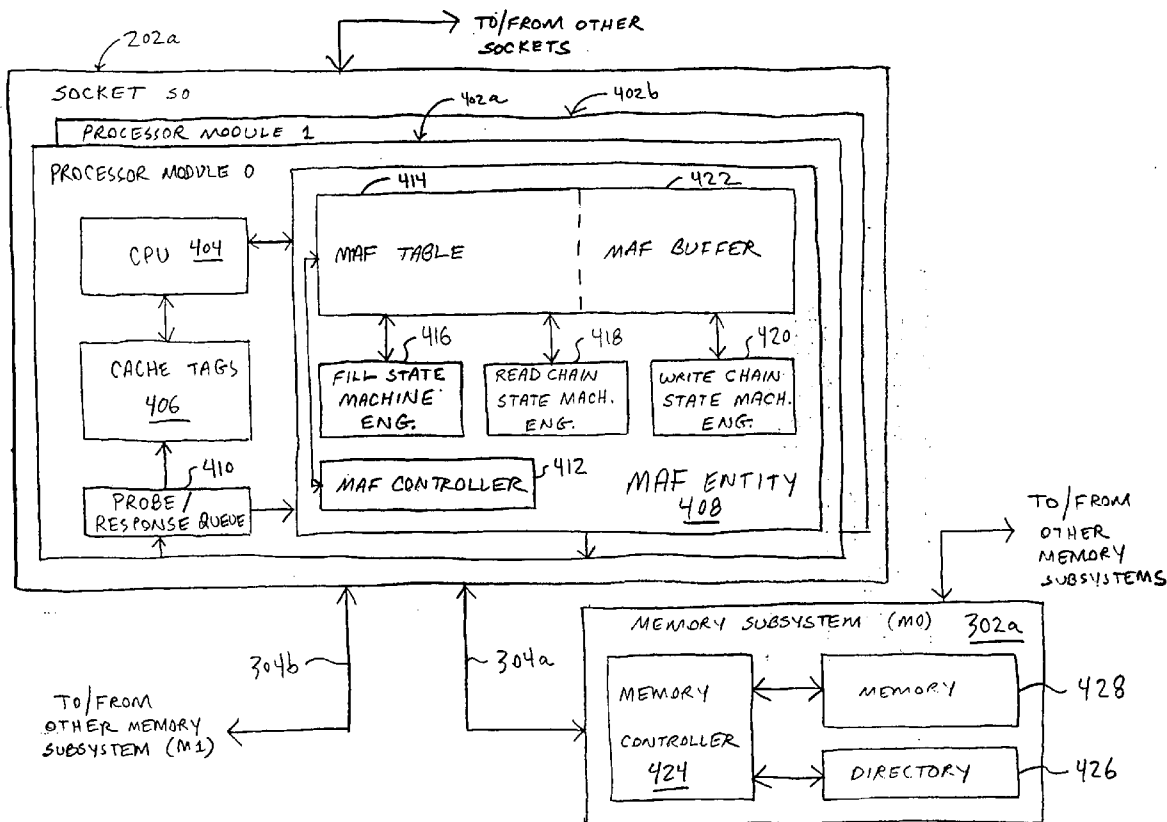 TO/FROM OTHER
SOCKETS
202a
SOCKET S0
402a
402b
PROCESSOR MODULE 1
PROCESSOR MODULE 0
414
422
CPU 404
MAF TABLE
MAF BUFFER
416
418
420
CACHE TAGS
406
FILL STATE
MACHINE
ENG.
READ CHAIN
STATE MACH.
ENG.
WRITE CHAIN
STATE MACH.
ENG.
410
PROBE/
RESPONSE QUEUE
MAF CONTROLLER
412
MAF ENTITY
408
TO/FROM
OTHER
MEMORY
SUBSYSTEMS
304b
304a
TO/FROM
OTHER MEMORY
SUBSYSTEM (M1)
MEMORY SUBSYSTEM (M0)
302a
MEMORY
CONTROLLER
424
MEMORY
428
DIRECTORY
426